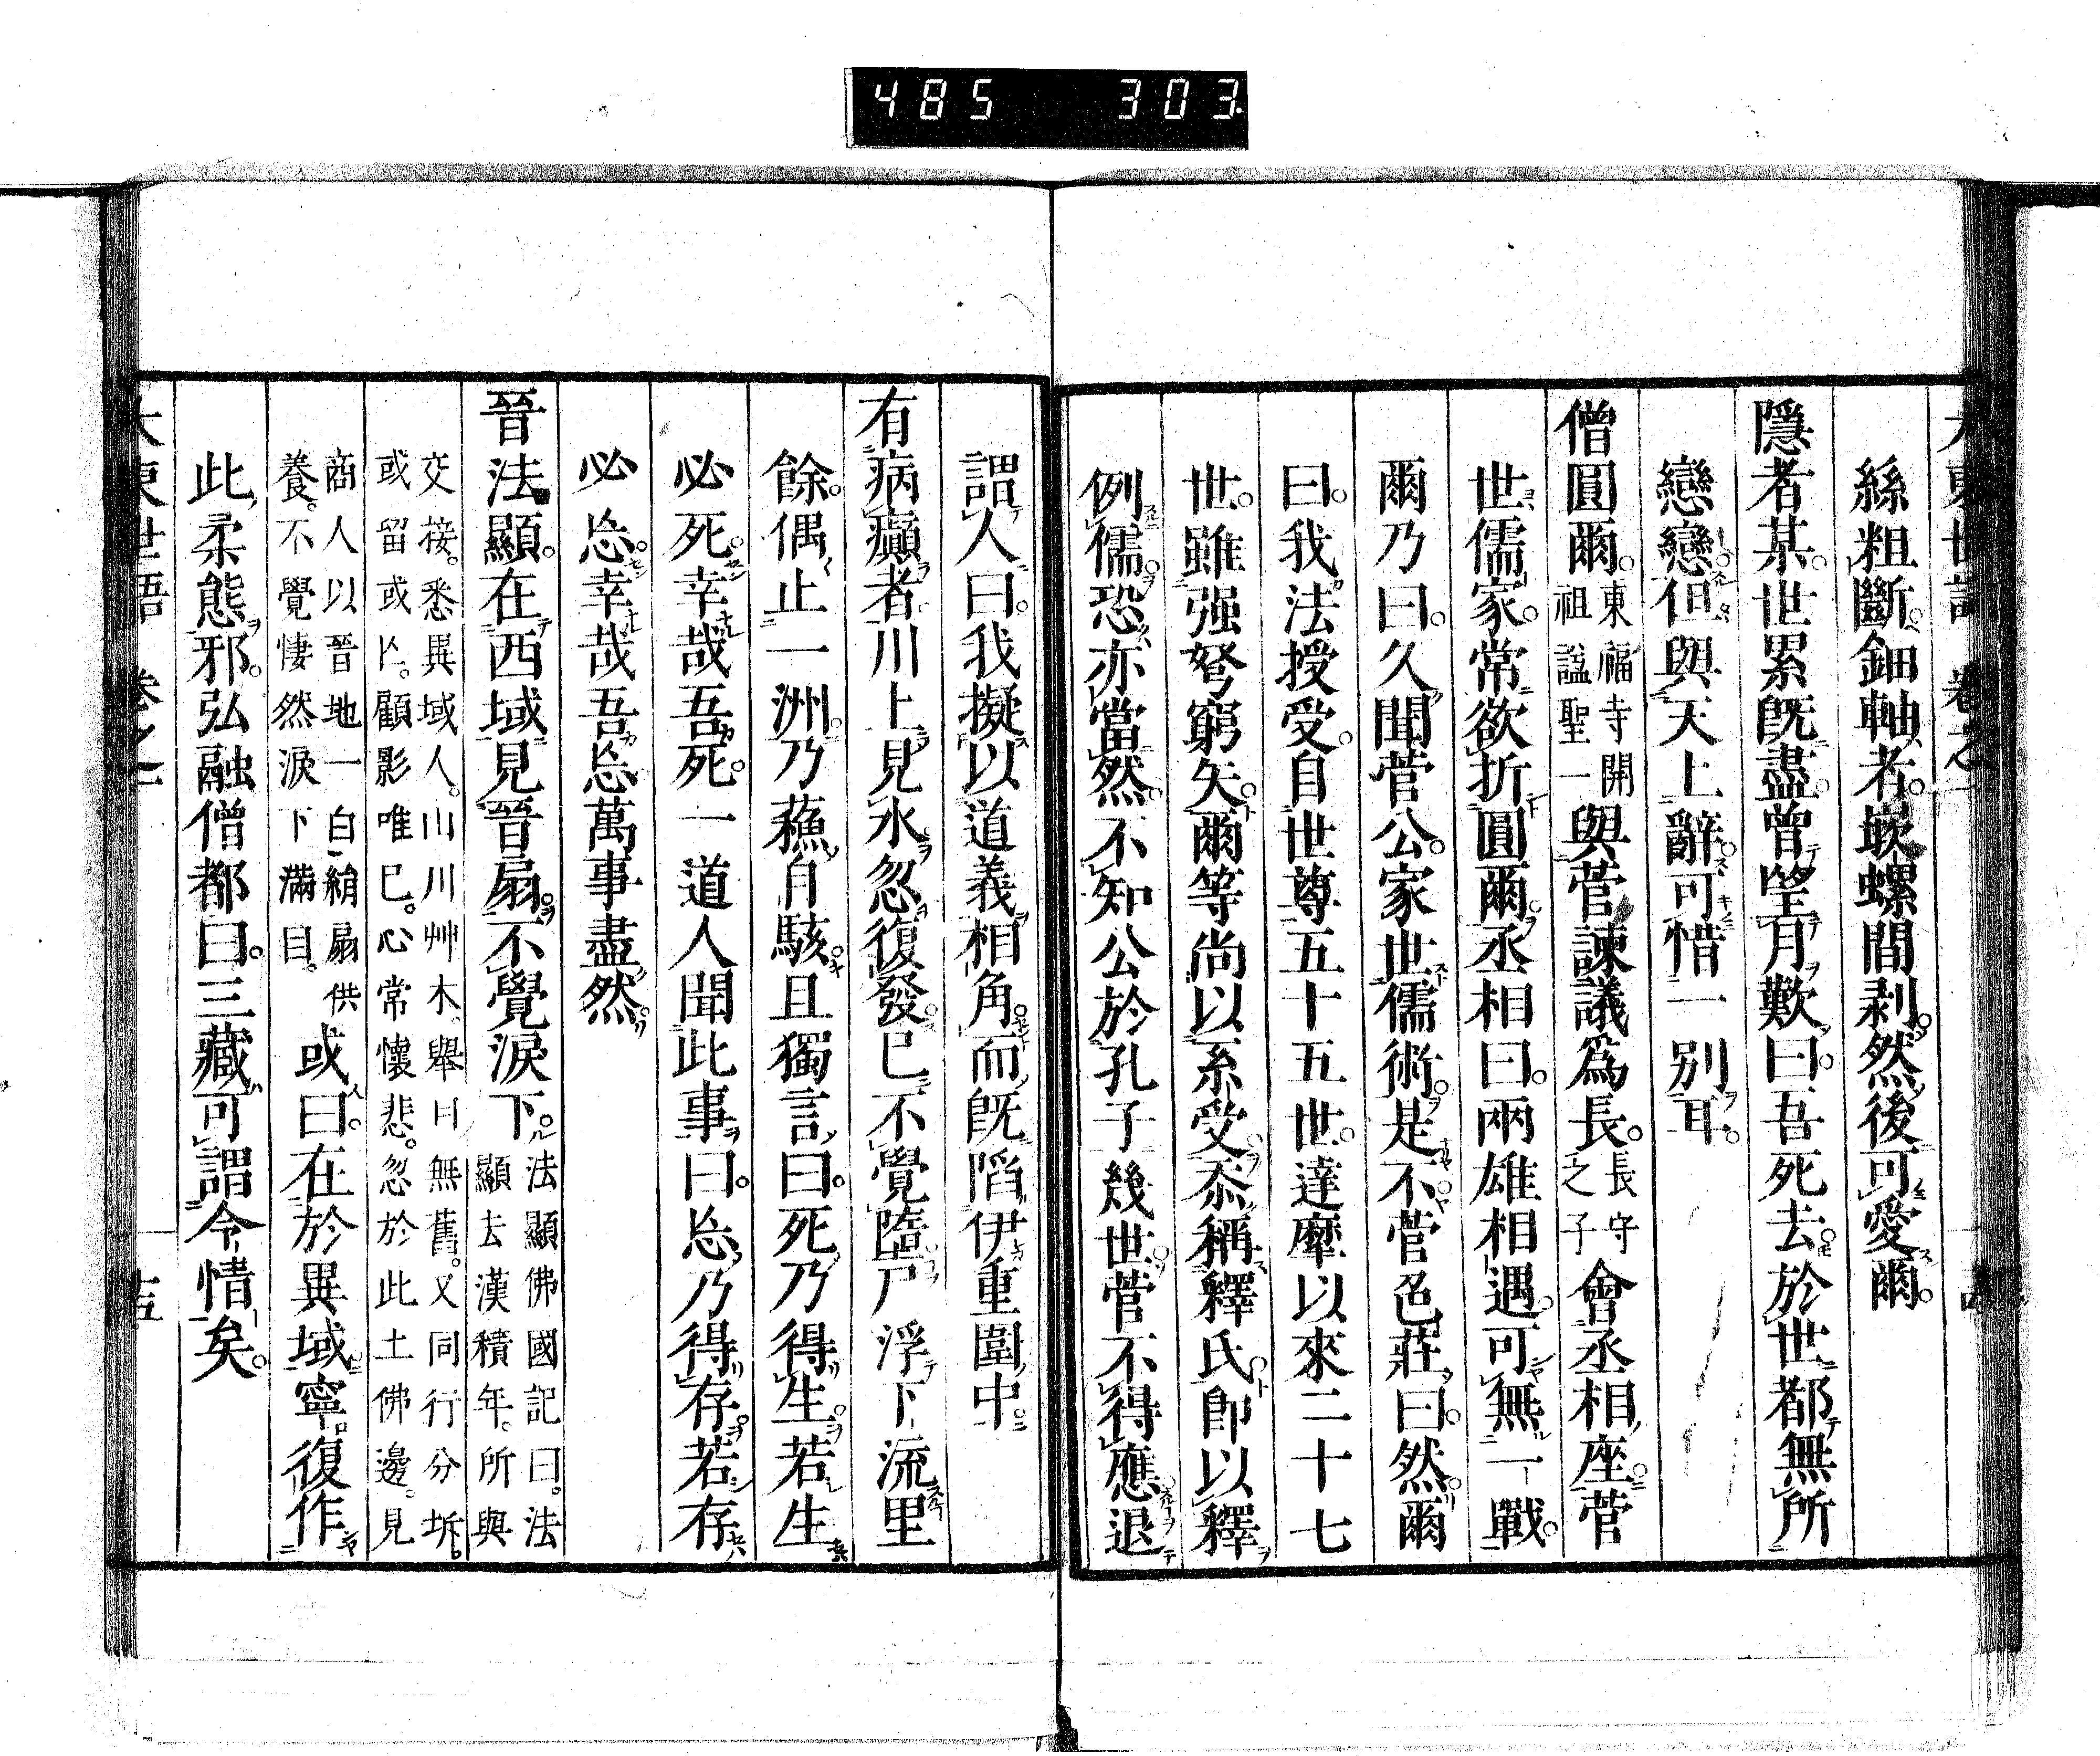 485 303
絲粗斷。鈿軸者。嵌螺間剥。然後可愛爾。
隱者某。世累旣盡。曾望月歎曰。吾死去。於世都無所
戀戀。但與天上辭。可惜一別耳。
僧圓爾。東福寺開祖諡聖一與菅諫議爲長。長守之子會丞相座。菅
世儒家。常欲折圓爾。丞相曰。兩雄相遇。可無一戰。
爾乃曰。久聞菅公。家世儒術。是不。菅色莊曰。然。爾
曰。我法授受。自世尊五十五世。達摩以來二十七
世。雖强弩窮矢。爾等尚以系受忝稱釋氏。即以釋
例儒。恐亦當然。不知公於孔子幾世。菅不得應退
謂人曰。我擬以道義相角。而旣陷伊重圍中。
有病癲者。川上見水忽復發。已不覺墮。尸浮下流里
餘。偶止一洲。乃蘓。自駭。且獨言曰。死乃得生。若生
必死。幸哉吾死。一道人聞此事曰。㤀乃得存。若存
必㤀。幸哉吾㤀。萬事盡然。
晉法顯。在西域見晉扇。不覺淚下。法顯佛國記曰。法顯去漢積年。所與
交接。悉異域人。山川艸木。舉目無舊。又同行分坼。或留或亾。顧影唯已。心常懷悲。忽於此土佛邊。見
商人以晉地一白絹扇供養。不覺悽然淚下滿目。或曰。在於異域。寧復作
此柔態邪。弘融僧都曰。三藏可謂令情矣。
大東世語 卷之二